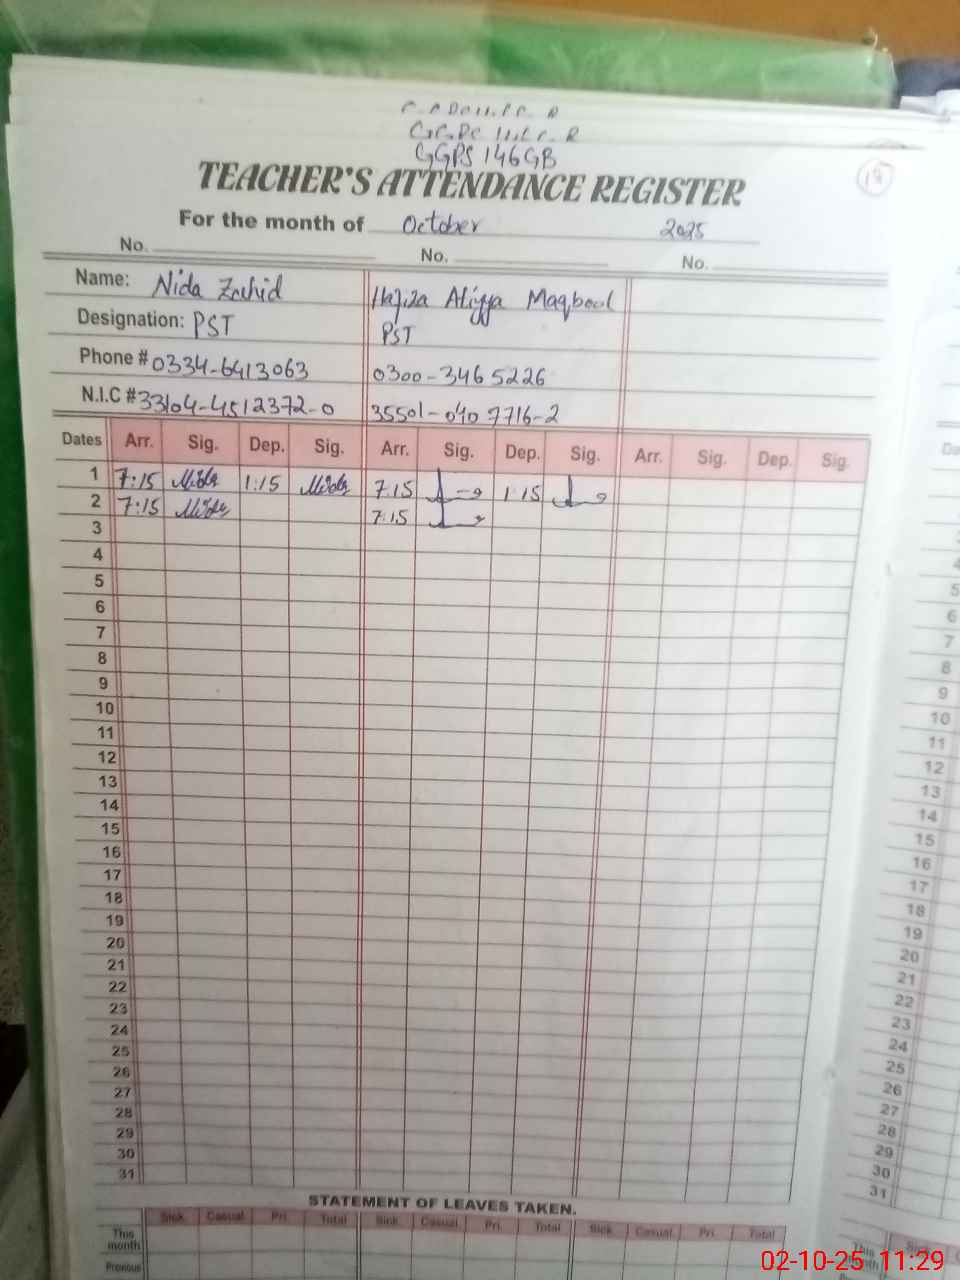 GGPS 146 GB
18
TEACHER'S ATTENDANCE REGISTER
For the month of October 2025
No. No. No.
Name: Nida Zahid Hajira Atiyya Maqbool
Designation: PST PST
Phone # 0334-6413063 0300-3465226
N.I.C # 33104-4512372-0 35501-0407716-2
Dates Arr. Sig. Dep. Sig. Arr. Sig. Dep. Sig. Arr. Sig. Dep. Sig.
1 7:15 Nida 1:15 Nida 7:15 1:15
2 7:15 Nida 7:15
3
4
5
6
7
8
9
10
11
12
13
14
15
16
17
18
19
20
21
22
23
24
25
26
27
28
29
30
31
STATEMENT OF LEAVES TAKEN.
Sick Casual Pri. Total Sick Casual Pri. Total Sick Casual Pri. Total
This month
Previous
5
6
7
8
9
10
11
12
13
14
15
16
17
18
19
20
21
22
23
24
25
26
27
28
29
30
31
This month
02-10-25 11:29